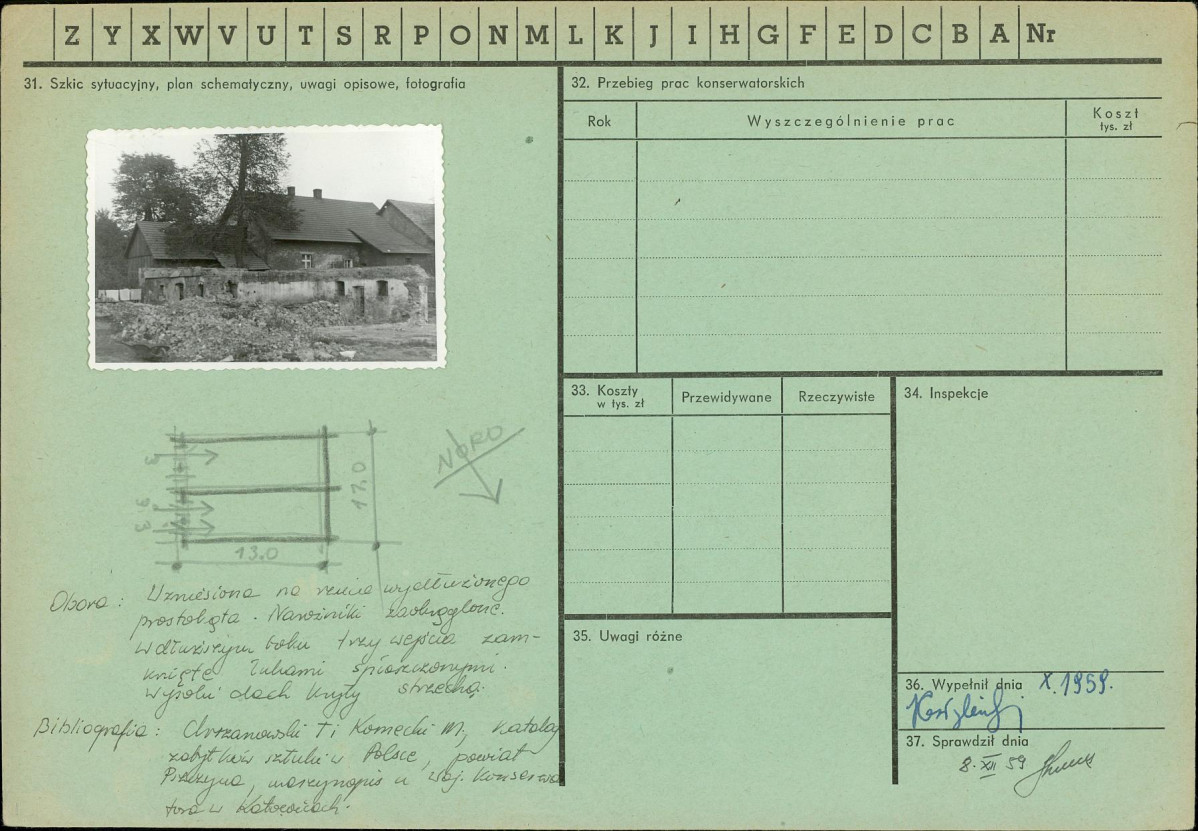 Z Y X W V U T S R P O N M L K J I H G F E D C B A Nr
31. Szkic sytuacyjny, plan schematyczny, uwagi opisowe, fotografia
3
3
3
17.0
13.0
NORD
Obora : Wzniesiona na rzucie wydłużonego
prostokąta. Narożniki zaokrąglone.
W dłuższym boku trzy wejścia zam-
knięte łukami spłaszczonymi.
Wysoki dach kryty strzechą.
Bibliografia : Chrzanowski T i Kornecki M, Katalog
zabytków sztuki w Polsce, powiat
Pszczyna, maszynopis u Woj. Konserwa
tora w Katowicach.
32. Przebieg prac konserwatorskich
Rok
Wyszczególnienie prac
Koszt
tys. zł
33. Koszty
w tys. zł
Przewidywane
Rzeczywiste
34. Inspekcje
35. Uwagi różne
36. Wypełnił dnia X.1959.
37. Sprawdził dnia
8.XII 59